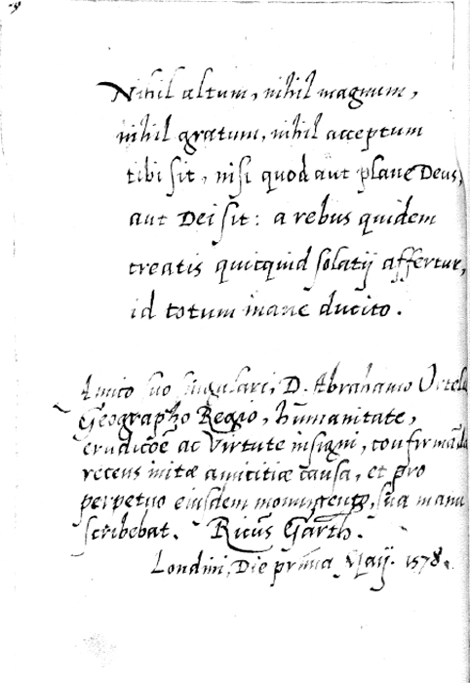 Nihil altum, nihil magnum,
nihil gratum, nihil acceptum
tibi sit, nisi quod aut plane Deus,
aut Dei sit: a rebus quidem
creatis quicquid solatij affertur,
id totum inane ducito.
Amico suo singulari, D. Abrahamo Ortel
Geographo Regio, hūmanitate,
erudicōe ac virtute insigni, confirmādæ
recens initæ amicitiæ causa, et pro
perpetuo eiusdem monumento, sua manu
scribebat. Ricūs Garth.
Londini, Die prima Maij. 1578.